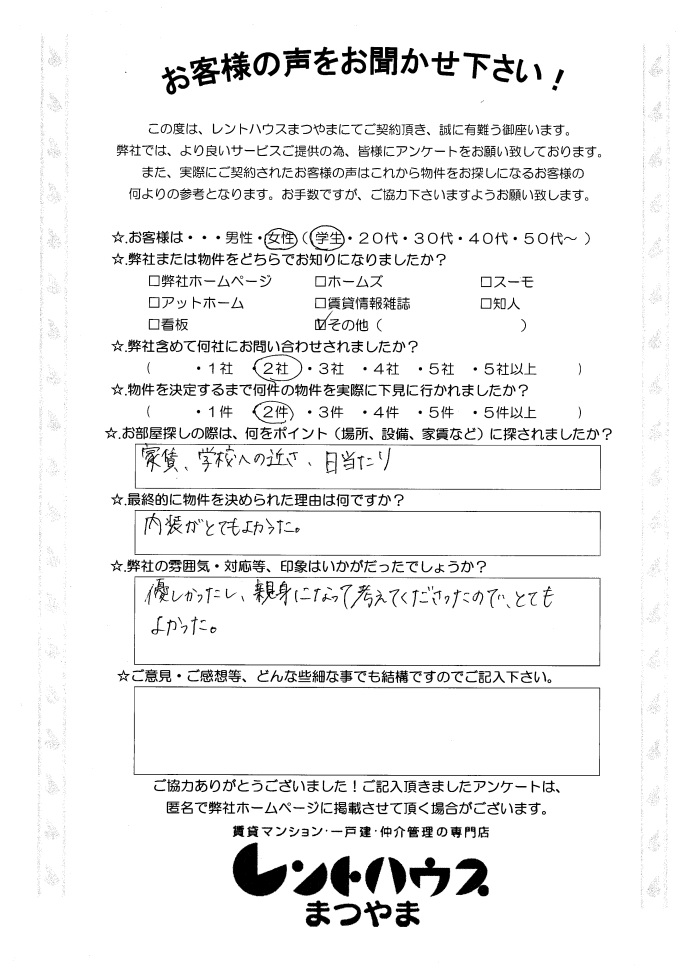 お客様の声をお聞かせ下さい!
この度は、レントハウスまつやまにてご契約頂き、誠に有難う御座います。
弊社では、より良いサービスご提供の為、皆様にアンケートをお願い致しております。
また、実際にご契約されたお客様の声はこれから物件をお探しになるお客様の
何よりの参考となります。お手数ですが、ご協力下さいますようお願い致します。
☆.お客様は・・・男性・女性(学生・20代・30代・40代・50代~)
☆.弊社または物件をどちらでお知りになりましたか?
□弊社ホームページ □ホームズ □スーモ
□アットホーム □賃貸情報雑誌 □知人
□看板 ☑その他( )
☆.弊社含めて何社にお問い合わせされましたか?
( ・1社 ・2社 ・3社 ・4社 ・5社 ・5社以上 )
☆.物件を決定するまで何件の物件を実際に下見に行かれましたか?
( ・1件 ・2件 ・3件 ・4件 ・5件 ・5件以上 )
☆.お部屋探しの際は、何をポイント(場所、設備、家賃など)に探されましたか?
家賃、学校への近さ、日当たり
☆.最終的に物件を決められた理由は何ですか?
内装がとてもよかった。
☆.弊社の雰囲気・対応等、印象はいかがだったでしょうか?
優しかったし、親身になって考えてくださったので、とても
よかった。
☆ご意見・ご感想等、どんな些細な事でも結構ですのでご記入下さい。
ご協力ありがとうございました!ご記入頂きましたアンケートは、
匿名で弊社ホームページに掲載させて頂く場合がございます。
賃貸マンション・一戸建・仲介管理の専門店
レントハウス
まつやま